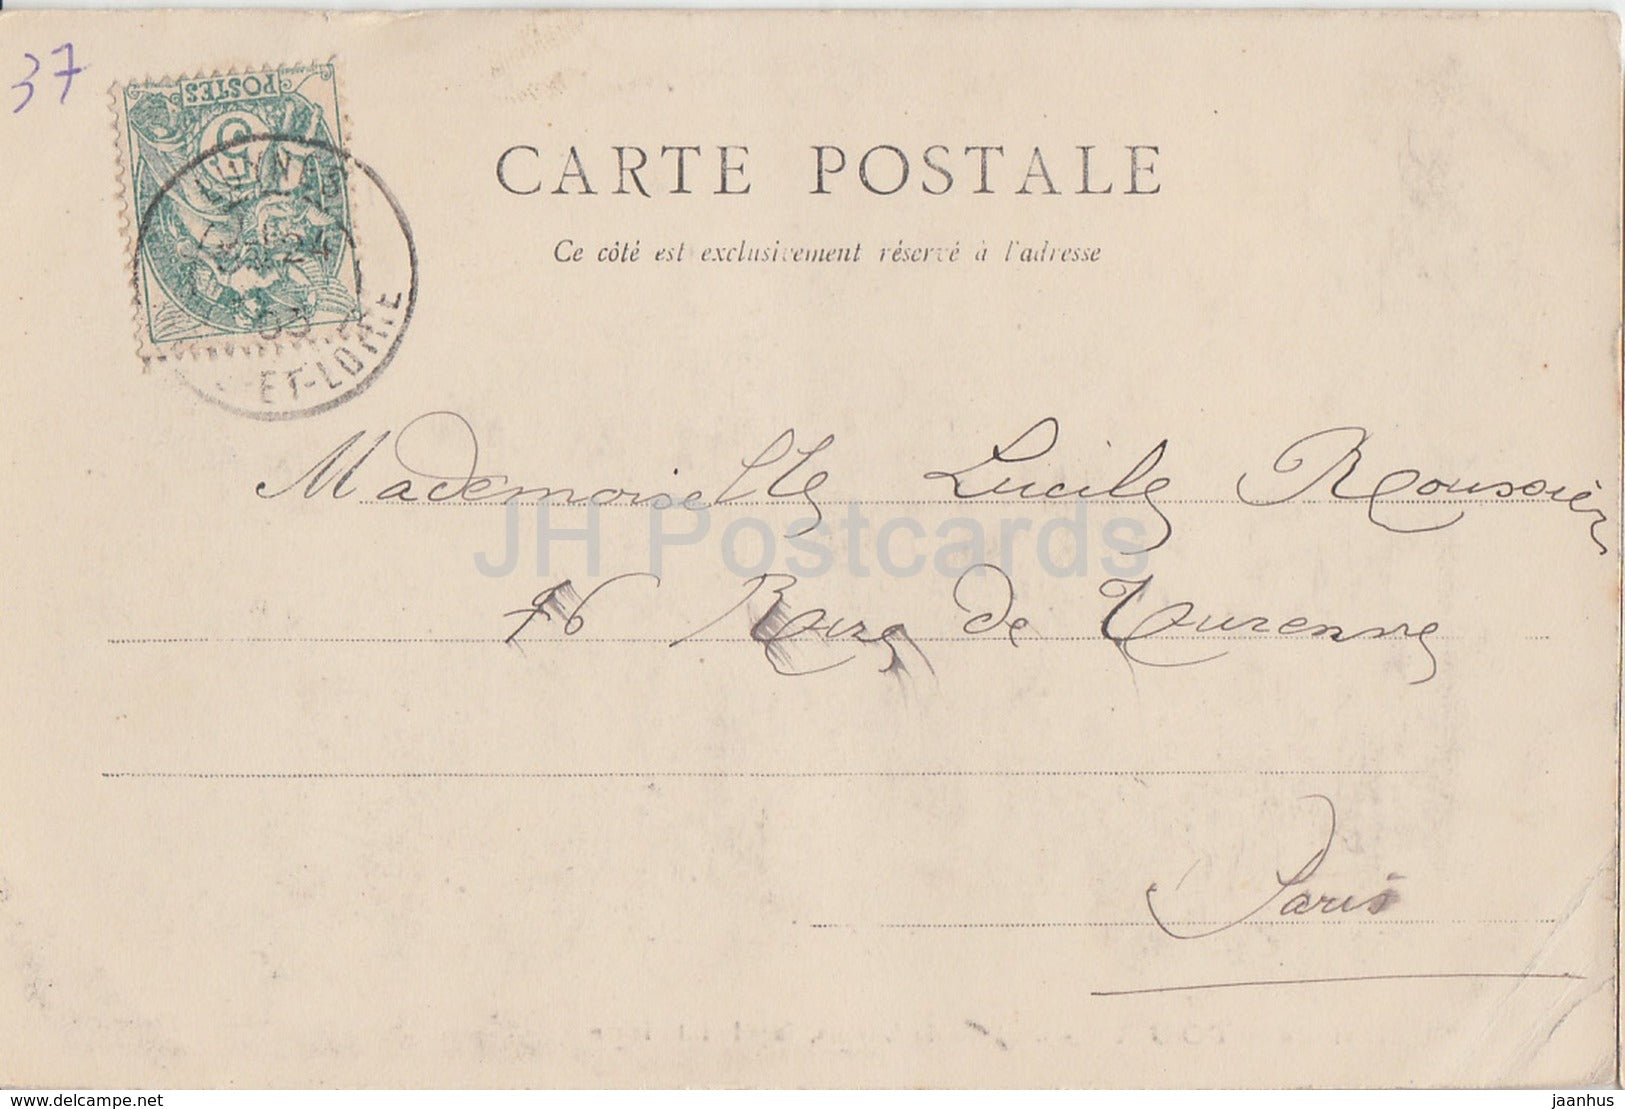 37
POSTES
5
24
03
ET-LOIRE
CARTE POSTALE
Ce côté est exclusivement réservé à l'adresse
Mademoiselle Lucile Roussier
JH Postcards
76 Rue de Turenne
Paris
delcampe.net
jaanhus